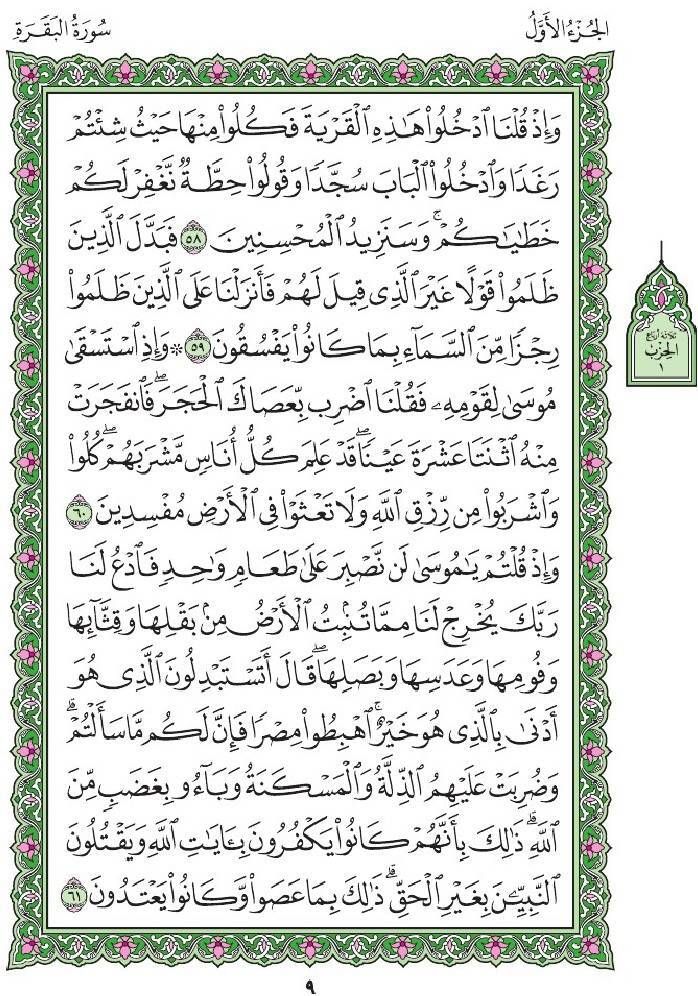 الجُزْءُ الأَوَّلُ
سُورَةُ البَقَرَةِ
وَإِذۡ قُلۡنَا ٱدۡخُلُواْ هَٰذِهِ ٱلۡقَرۡيَةَ فَكُلُواْ مِنۡهَا حَيۡثُ شِئۡتُمۡ
رَغَدٗا وَٱدۡخُلُواْ ٱلۡبَابَ سُجَّدٗا وَقُولُواْ حِطَّةٞ نَّغۡفِرۡ لَكُمۡ
خَطَٰيَٰكُمۡۚ وَسَنَزِيدُ ٱلۡمُحۡسِنِينَ ٥٨ فَبَدَّلَ ٱلَّذِينَ
ظَلَمُواْ قَوۡلًا غَيۡرَ ٱلَّذِي قِيلَ لَهُمۡ فَأَنزَلۡنَا عَلَى ٱلَّذِينَ ظَلَمُواْ
رِجۡزٗا مِّنَ ٱلسَّمَآءِ بِمَا كَانُواْ يَفۡسُقُونَ ٥٩ * وَإِذِ ٱسۡتَسۡقَىٰ
مُوسَىٰ لِقَوۡمِهِۦ فَقُلۡنَا ٱضۡرِب بِّعَصَاكَ ٱلۡحَجَرَۖ فَٱنفَجَرَتۡ
مِنۡهُ ٱثۡنَتَا عَشۡرَةَ عَيۡنٗاۖ قَدۡ عَلِمَ كُلُّ أُنَاسٖ مَّشۡرَبَهُمۡۖ كُلُواْ
وَٱشۡرَبُواْ مِن رِّزۡقِ ٱللَّهِ وَلَا تَعۡثَوۡاْ فِي ٱلۡأَرۡضِ مُفۡسِدِينَ ٦٠
وَإِذۡ قُلۡتُمۡ يَٰمُوسَىٰ لَن نَّصۡبِرَ عَلَىٰ طَعَامٖ وَٰحِدٖ فَٱدۡعُ لَنَا
رَبَّكَ يُخۡرِجۡ لَنَا مِمَّا تُنۢبِتُ ٱلۡأَرۡضُ مِنۢ بَقۡلِهَا وَقِثَّآئِهَا
وَفُومِهَا وَعَدَسِهَا وَبَصَلِهَاۖ قَالَ أَتَسۡتَبۡدِلُونَ ٱلَّذِي هُوَ
أَدۡنَىٰ بِٱلَّذِي هُوَ خَيۡرٌۚ ٱهۡبِطُواْ مِصۡرٗا فَإِنَّ لَكُم مَّا سَأَلۡتُمۡۗ
وَضُرِبَتۡ عَلَيۡهِمُ ٱلذِّلَّةُ وَٱلۡمَسۡكَنَةُ وَبَآءُو بِغَضَبٖ مِّنَ
ٱللَّهِۗ ذَٰلِكَ بِأَنَّهُمۡ كَانُواْ يَكۡفُرُونَ بِـَٔايَٰتِ ٱللَّهِ وَيَقۡتُلُونَ
ٱلنَّبِيِّـۧنَ بِغَيۡرِ ٱلۡحَقِّۗ ذَٰلِكَ بِمَا عَصَواْ وَّكَانُواْ يَعۡتَدُونَ ٦١
ثلاثة أرباع
الحزب
١
٩